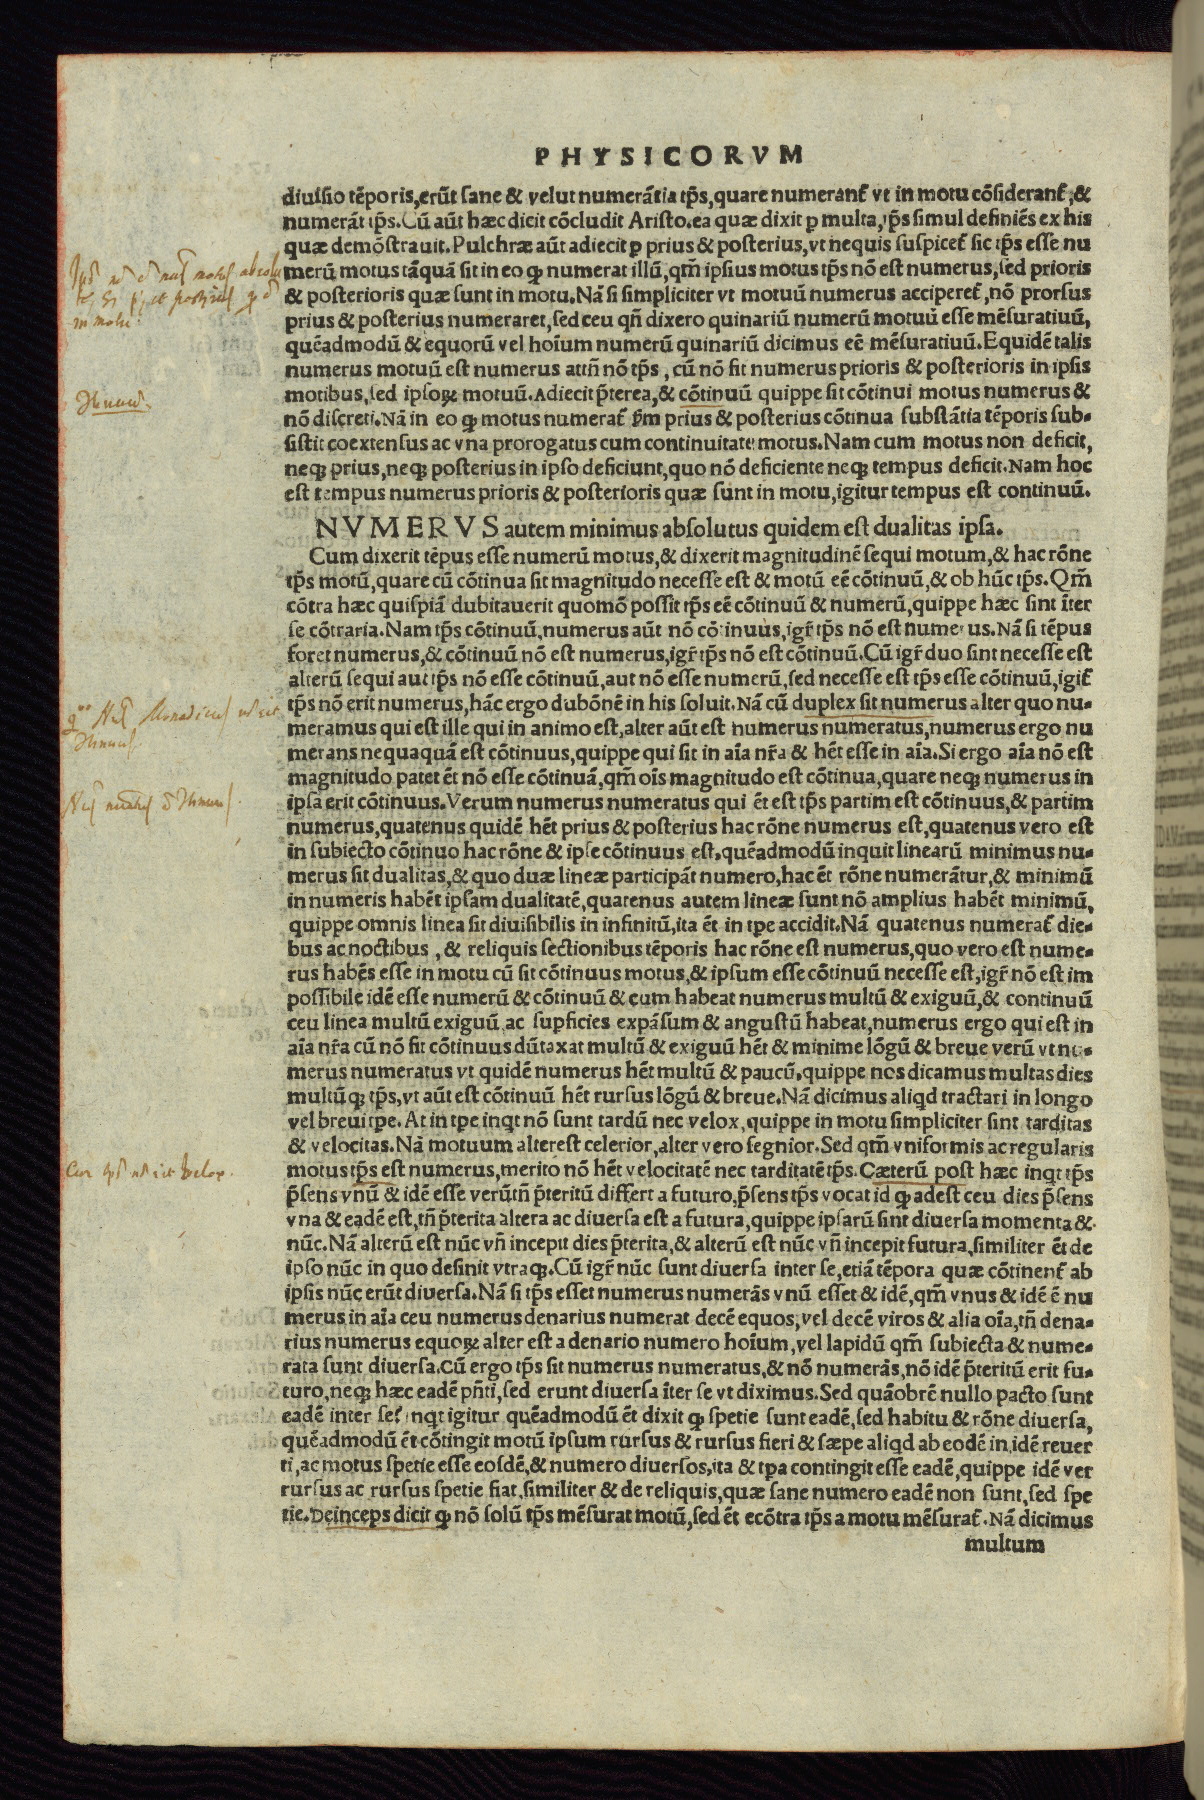 PHYSICORVM
diuisio tẽporis, erũt sane & velut numerãtia tp̃s, quare numerant᷑ vt in motu cõsiderant᷑, &
numerãt tp̃s. Cũ aũt hæc dicit cõcludit Aristo. ea quæ dixit ꝑ multa, tp̃s simul definiẽs ex his
quæ demõstrauit. Pulchræ aũt adiecit ꝑ prius & posterius, vt nequis suspicet᷑ sic tp̃s esse nu
merũ motus tãquã sit in eo ꝙ numerat illũ, qm̃ ipsius motus tp̃s nõ est numerus, sed prioris
& posterioris quæ sunt in motu. Nã si simpliciter vt motuũ numerus acciperet᷑, nõ prorsus
prius & posterius numeraret, sed ceu qñ dixero quinariũ numerũ motuũ esse mẽsuratiuũ,
quẽadmodũ & equorũ vel hoĩum numerũ quinariũ dicimus eẽ mẽsuratiuũ. Equidẽ talis
numerus motuũ est numerus attñ nõ tp̃s, cũ nõ sit numerus prioris & posterioris in ipsis
motibus, sed ipsoꝝ motuũ. Adiecit p̃terea, & cõtinuũ quippe sit cõtinui motus numerus &
nõ discreti. Nã in eo ꝙ motus numerat᷑ ẜm prius & posterius cõtinua substãtia tẽporis sub-
sistit coextensus ac vna prorogatus cum continuitate motus. Nam cum motus non deficit,
neqꝫ prius, neqꝫ posterius in ipso deficiunt, quo nõ deficiente neqꝫ tempus deficit. Nam hoc
est tempus numerus prioris & posterioris quæ sunt in motu, igitur tempus est continuũ.
NVMERVS autem minimus absolutus quidem est dualitas ipsa.
Cum dixerit tẽpus esse numerũ motus, & dixerit magnitudinẽ sequi motum, & hac rõne
tp̃s motũ, quare cũ cõtinua sit magnitudo necesse est & motũ eẽ cõtinuũ, & ob hũc tp̃s. Qm̃
cõtra hæc quispiã dubitauerit quomõ possit tp̃s eẽ cõtinuũ & numerũ, quippe hæc sint ĩter
se cõtraria. Nam tp̃s cõtinuũ, numerus aũt nõ cõtinuus, igr̃ tp̃s nõ est numerus. Nã si tẽpus
foret numerus, & cõtinuũ nõ est numerus, igr̃ tp̃s nõ est cõtinuũ. Cũ igr̃ duo sint necesse est
alterũ sequi aut tp̃s nõ esse cõtinuũ, aut nõ esse numerũ, sed necesse est tp̃s esse cõtinuũ, igit᷑
tp̃s nõ erit numerus, hãc ergo dubõnẽ in his soluit. Nã cũ duplex sit numerus alter quo nu-
meramus qui est ille qui in animo est, alter aũt est numerus numeratus, numerus ergo nu
merans nequaquã est cõtinuus, quippe qui sit in aĩa nr̃a & hẽt esse in aĩa. Si ergo aĩa nõ est
magnitudo patet ẽt nõ esse cõtinuã, qm̃ oĩs magnitudo est cõtinua, quare neqꝫ numerus in
ipsa erit cõtinuus. Verum numerus numeratus qui ẽt est tp̃s partim est cõtinuus, & partim
numerus, quatenus quidẽ hẽt prius & posterius hac rõne numerus est, quatenus vero est
in subiecto cõtinuo hac rõne & ipse cõtinuus est, quẽadmodũ inquit linearũ minimus nu-
merus sit dualitas, & quo duæ lineæ participãt numero, hac ẽt rõne numerãtur, & minimũ
in numeris habẽt ipsam dualitatẽ, quatenus autem lineæ sunt nõ amplius habẽt minimũ,
quippe omnis linea sit diuisibilis in infinitũ, ita ẽt in tpe accidit. Nã quatenus numerat᷑ die-
bus ac noctibus, & reliquis sectionibus tẽporis hac rõne est numerus, quo vero est nume-
rus habẽs esse in motu cũ sit cõtinuus motus, & ipsum esse cõtinuũ necesse est, igr̃ nõ est im
possibile idẽ esse numerũ & cõtinuũ & cum habeat numerus multũ & exiguũ, & continuũ
ceu linea multũ exiguũ, ac supficies expãsum & angustũ habeat, numerus ergo qui est in
aĩa nr̃a cũ nõ sit cõtinuus dũtaxat multũ & exiguũ hẽt & minime lõgũ & breue verũ vt nu-
merus numeratus vt quidẽ numerus hẽt multũ & paucũ, quippe nos dicamus multas dies
multũqꝫ tp̃s, vt aũt est cõtinuũ hẽt rursus lõgũ & breue. Nã dicimus aliqd tractari in longo
vel breui tpe. At in tpe inqt nõ sunt tardũ nec velox, quippe in motu simpliciter sint tarditas
& velocitas. Nã motuum alter est celerior, alter vero segnior. Sed qm̃ vniformis ac regularis
motus tp̃s est numerus, merito nõ hẽt velocitatẽ nec tarditatẽ tp̃s. Cæterũ post hæc inqt tp̃s
p̃sens vnũ & idẽ esse verũtñ p̃teritũ differt a futuro, p̃sens tp̃s vocat id ꝙ adest ceu dies p̃sens
vna & eadẽ est, tñ p̃terita altera ac diuersa est a futura, quippe ipsarũ sint diuersa momenta &
nũc. Nã alterũ est nũc vñ incepit dies p̃terita, & alterũ est nũc vñ incepit futura, similiter ẽt de
ipso nũc in quo desinit vtraqꝫ. Cũ igr̃ nũc sunt diuersa inter se, etiã tẽpora quæ cõtinent᷑ ab
ipsis nũc erũt diuersa. Nã si tp̃s esset numerus numerãs vnũ esset & idẽ, qm̃ vnus & idẽ ẽ nu
merus in aĩa ceu numerus denarius numerat decẽ equos, vel decẽ viros & alia oĩa, tñ dena-
rius numerus equoꝝ alter est a denario numero hoĩum, vel lapidũ qm̃ subiecta & nume-
rata sunt diuersa. Cũ ergo tp̃s sit numerus numeratus, & nõ numerãs, nõ idẽ p̃teritũ erit fu-
turo, neqꝫ hæc eadẽ pñti, sed erunt diuersa ĩter se vt diximus. Sed quãobrẽ nullo pacto sunt
eadẽ inter se? inqt igitur quẽadmodũ ẽt dixit ꝙ spetie sunt eadẽ, sed habitu & rõne diuersa,
quẽadmodũ ẽt cõtingit motũ ipsum rursus & rursus fieri & sæpe aliqd ab eodẽ in idẽ reuer
ti, ac motus spetie esse eosdẽ, & numero diuersos, ita & tpa contingit esse eadẽ, quippe idẽ ver
rursus ac rursus spetie fiat, similiter & de reliquis, quæ sane numero eadẽ non sunt, sed spe
tie. Deinceps dicit ꝙ nõ solũ tp̃s mẽsurat motũ, sed ẽt ecõtra tp̃s a motu mẽsurat᷑. Nã dicimus
multum